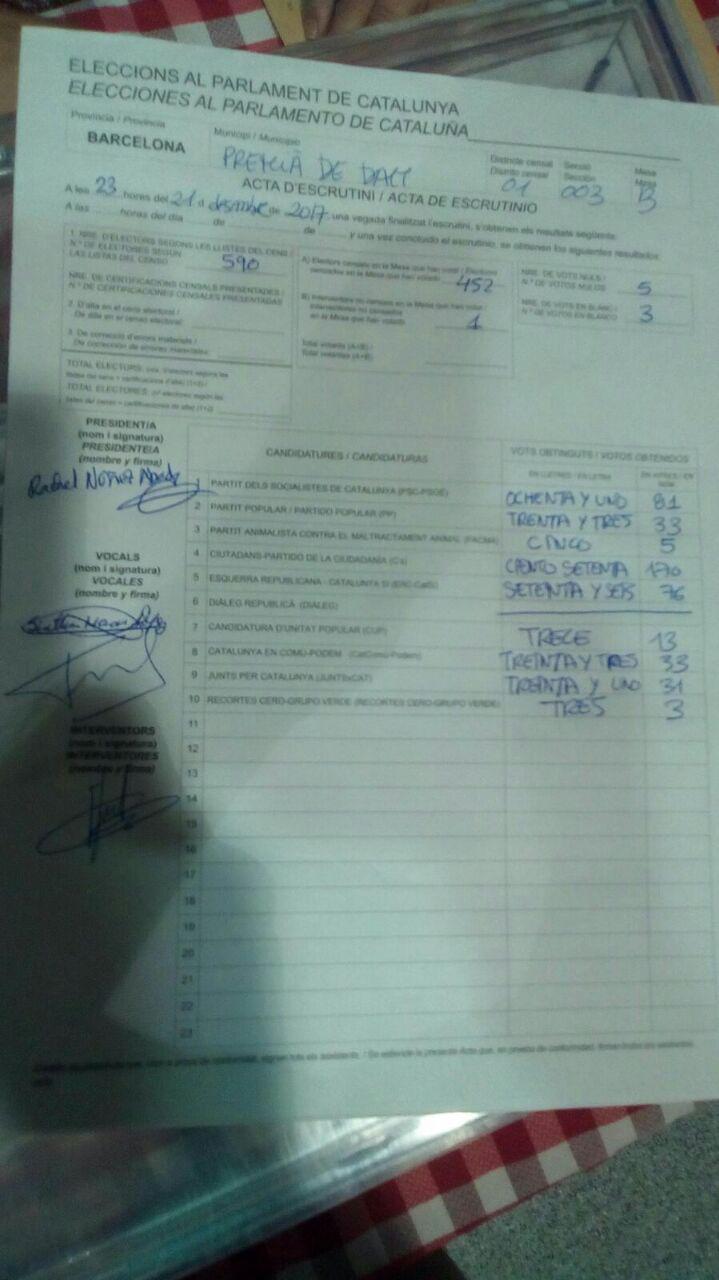 ELECCIONS AL PARLAMENT DE CATALUNYA
ELECCIONES AL PARLAMENTO DE CATALUÑA
Província / Provincia
BARCELONA
Municipi / Municipio
PREMIÀ DE DALT
Districte censal
Distrito censal
01
Secció
Sección
003
Mesa
Mesa
B
ACTA D'ESCRUTINI / ACTA DE ESCRUTINIO
A les 23 hores del 21 d desembre de 2017 una vegada finalitzat l'escrutini, s'obtenen els resultats següents:
A las horas del día de de y una vez concluido el escrutinio, se obtienen los siguientes resultados:
1. NRE. D'ELECTORS SEGONS LES LLISTES DEL CENS /
N.º DE ELECTORES SEGÚN
LAS LISTAS DEL CENSO 590
NRE. DE CERTIFICACIONS CENSALS PRESENTADES /
N.º DE CERTIFICACIONES CENSALES PRESENTADAS
2. D'alta en el cens electoral /
De alta en el censo electoral:
3. De correcció d'errors materials /
De corrección de errores materiales:
TOTAL ELECTORS
TOTAL ELECTORES
A) Electors censats en la Mesa que han votat / Electores
censados en la Mesa que han votado 452
B) Interventors no censats en la Mesa que han votat /
Interventores no censados
en la Mesa que han votado 1
Total votants (A+B) /
Total votantes (A+B)
NRE. DE VOTS NULS /
N.º DE VOTOS NULOS 5
NRE. DE VOTS EN BLANC /
N.º DE VOTOS EN BLANCO 3
PRESIDENT/A
(nom i signatura)
PRESIDENTE/A
(nombre y firma)
Rafael
VOCALS
(nom i signatura)
VOCALES
(nombre y firma)
INTERVENTORS
(nom i signatura)
INTERVENTORES
(nombre y firma)
CANDIDATURES / CANDIDATURAS
VOTS OBTINGUTS / VOTOS OBTENIDOS
EN LLETRES / EN LETRA
EN XIFRES / EN NÚM.
1 PARTIT DELS SOCIALISTES DE CATALUNYA (PSC-PSOE) OCHENTA Y UNO 81
2 PARTIT POPULAR / PARTIDO POPULAR (PP) TRENTA Y TRES 33
3 PARTIT ANIMALISTA CONTRA EL MALTRACTAMENT ANIMAL (PACMA) CINCO 5
4 CIUTADANS-PARTIDO DE LA CIUDADANÍA (C's) CIENTO SETENTA 170
5 ESQUERRA REPUBLICANA - CATALUNYA SÍ (ERC-CatSí) SETENTA Y SEIS 76
6 DIÀLEG REPUBLICÀ (DIÀLEG)
7 CANDIDATURA D'UNITAT POPULAR (CUP) TRECE 13
8 CATALUNYA EN COMÚ-PODEM (CatComú-Podem) TREINTA Y TRES 33
9 JUNTS PER CATALUNYA (JUNTSxCAT) TREINTA Y UNO 31
10 RECORTES CERO-GRUPO VERDE (RECORTES CERO-GRUPO VERDE) TRES 3
11
12
13
14
15
16
17
18
19
20
21
22
23